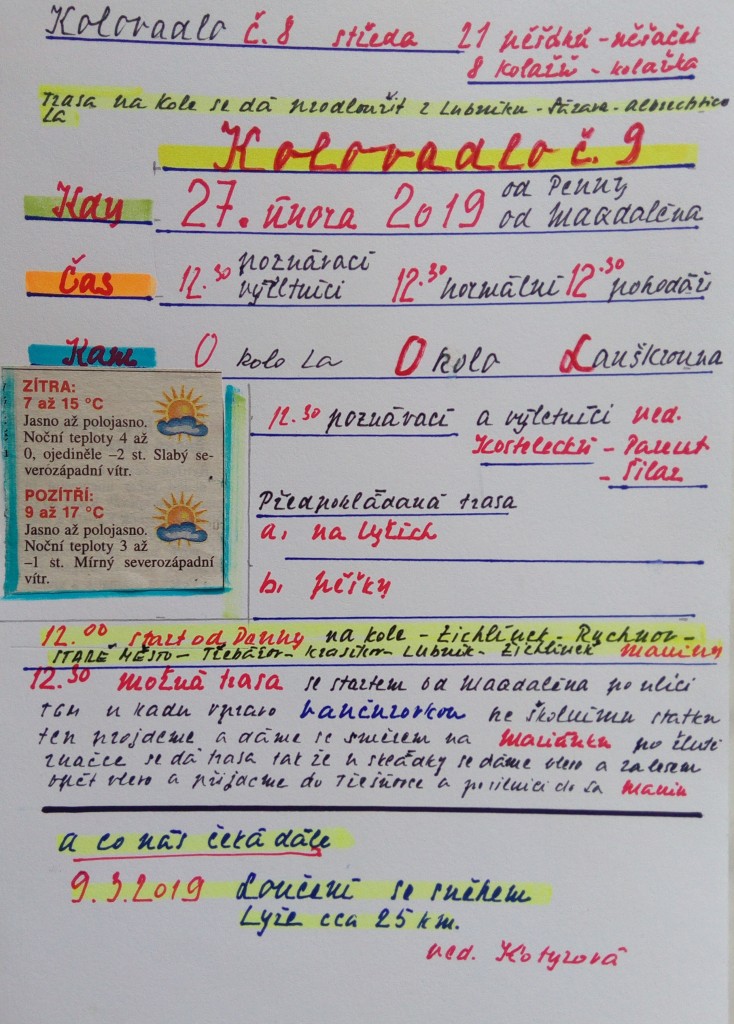 Kolovadlo č. 8 středa 21 pěšáků - pěšaček
8 kolařů - kolařka
Trasa na kole se dá prodloužit z Lubníku - Sázava - Albrechtice
LA
Kolovadlo č. 9
Kdy 27. února 2019 od Penny
od Magdaléna
Čas 12.30 poznávací výletníci 12.30 normální 12.30 pohodáři
Kam O kolo La Okolo Lanškrouna
ZÍTRA:
7 až 15 °C
Jasno až polojasno.
Noční teploty 4 až
0, ojediněle –2 st. Slabý se-
verozápadní vítr.
POZÍTŘÍ:
9 až 17 °C
Jasno až polojasno.
Noční teploty 3 až
–1 st. Mírný severozápadní
vítr.
12.30 poznávací a výletníci ved.
Kostelecký - Pacent
- Šilar
Předpokládaná trasa
a, na lyžích
b, pěšky
12.00 start od Penny na kole - Žichlínek - Rychnov -
STARÉ MĚSTO - Třebářov - Krasíkov - Lubník - Žichlínek
12.30 možná trasa se startem od Magdaléna po ulici
T.G.M u kadu vpravo ke školnímu statku
ten projdeme a dáme se směrem na Mariánku po žluté
značce se dá trasa tak že u se dáme vlevo a za lesem
opět vlevo a přijdeme do Třešňovce a posilnící do sa
a co nás čeká dále
9.3.2019 Loučení se sněhem
Lyže cca 25 km.
ved. Kotyzová